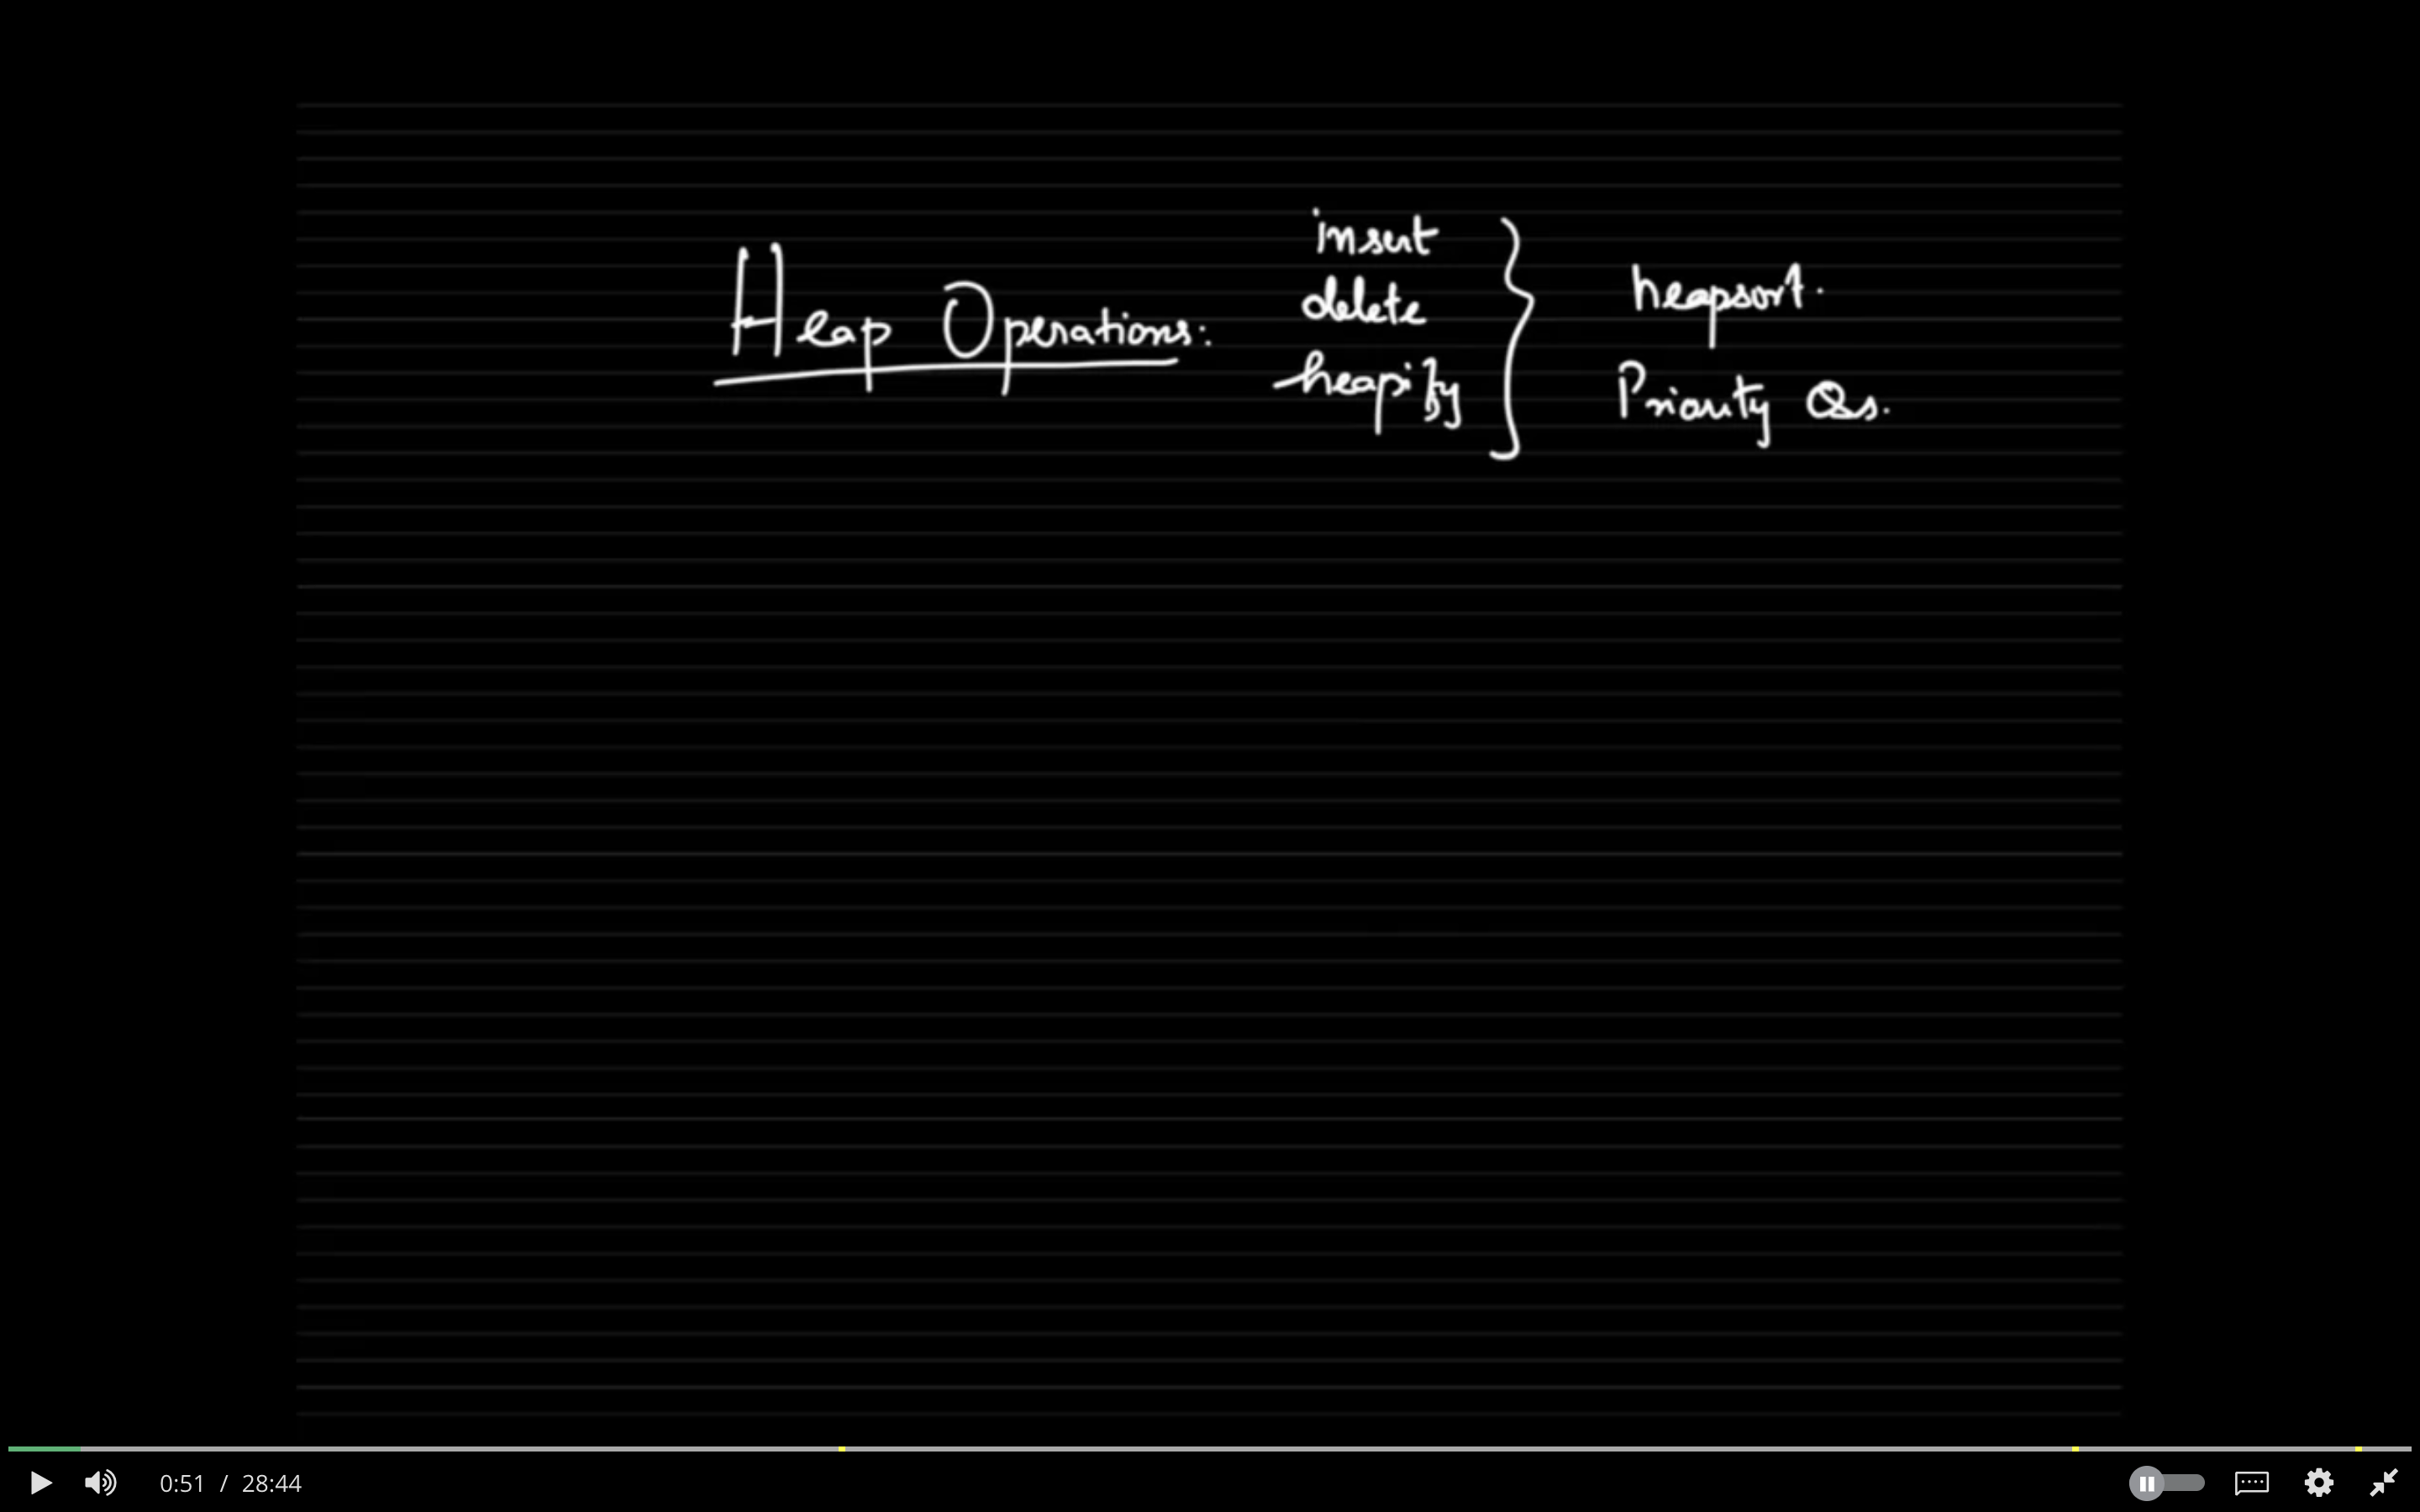 Heap Operations:
insert
delete
heapify
heapsort.
Priority Qs.
0:51 / 28:44